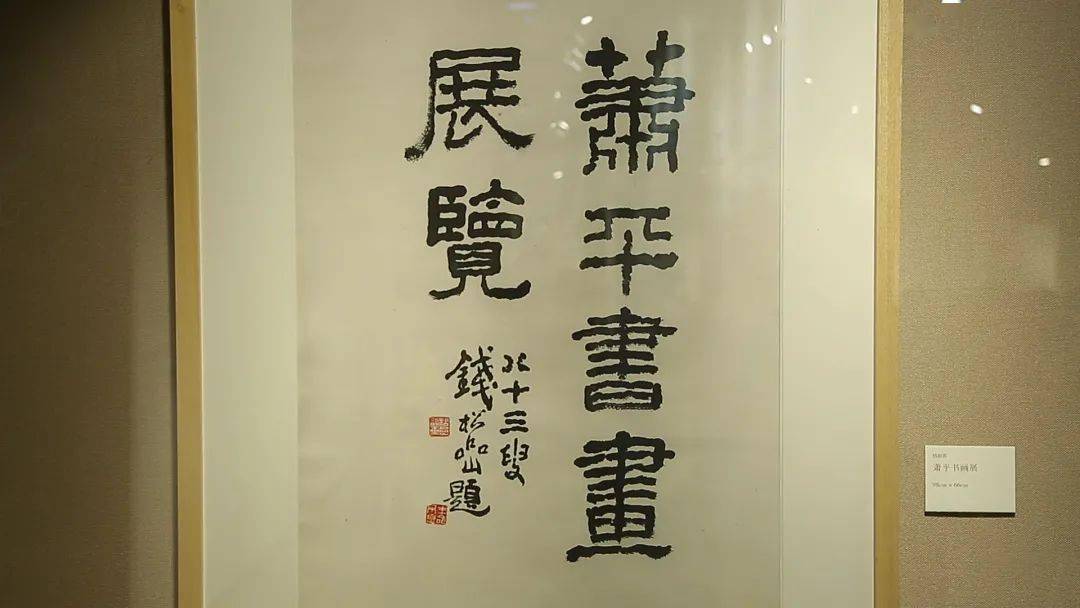 蕭平書畫
展覽
八十三叟
錢松嵒題
萧平书画展
98cm × 66cm